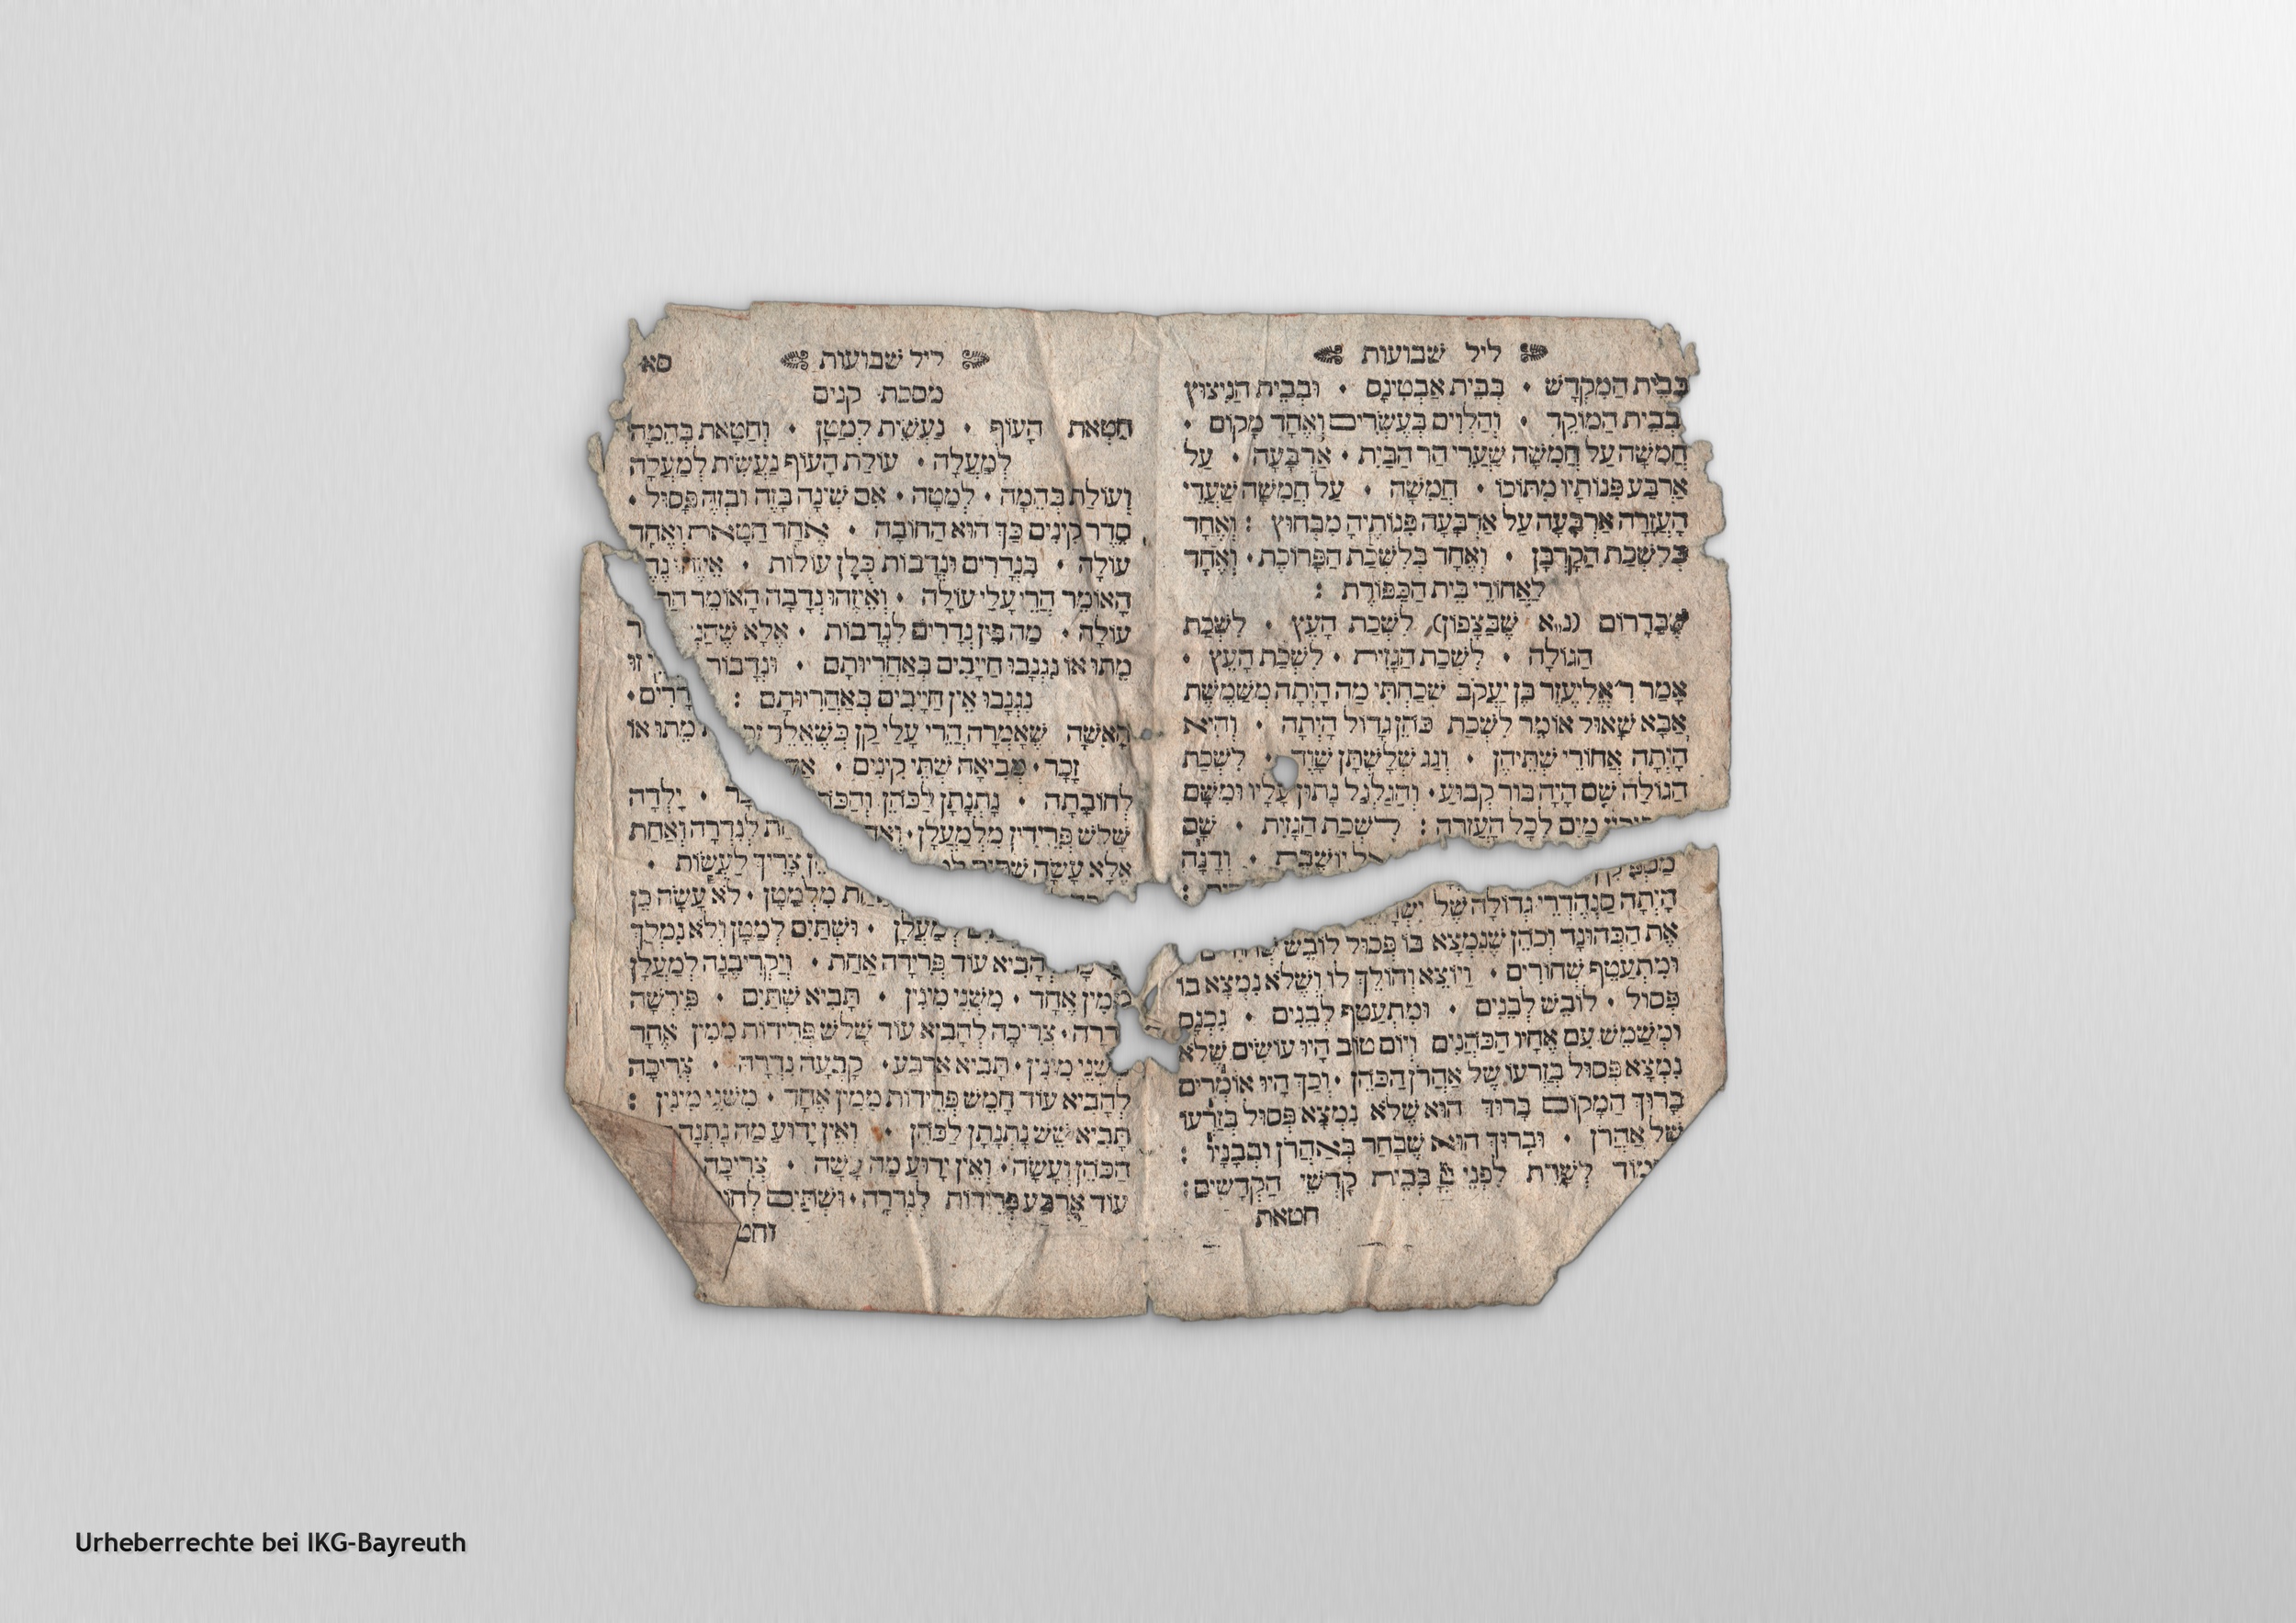 ליל שבועות
בְּבֵית הַמִּקְדָּשׁ • בְּבֵית אַבְטִינָס • וּבְבֵית הַנִּיצוֹץ
בְּבֵית הַמּוֹקֵד • וְהַלְוִיִם בְּעֶשְׂרִים וְאֶחָד מָקוֹם •
חֲמִשָּׁה עַל חֲמִשָּׁה שַׁעֲרֵי הַר הַבַּיִת • אַרְבָּעָה • עַל
אַרְבַּע פִּנּוֹתָיו מִתּוֹכוֹ • חֲמִשָּׁה • עַל חֲמִשָּׁה שַׁעֲרֵי
הָעֲזָרָה אַרְבָּעָה עַל אַרְבָּעָה פִּנּוֹתֶיהָ מִבַּחוּץ : וְאֶחָד
בְּלִשְׁכַּת הַקָּרְבָּן • וְאֶחָד בְּלִשְׁכַּת הַפָּרוֹכֶת • וְאֶחָד
לַאֲחוֹרֵי בֵּית הַכַּפּוֹרֶת :
שֶׁבַּדָרוֹם (נ״א שֶׁבַּצָפוֹן) לִשְׁכַּת הָעֵץ • לִשְׁכַּת
הַגּוֹלָה • לִשְׁכַּת הַגָּזִית • לִשְׁכַּת הָעֵץ •
אָמַר ר׳ אֱלִיעֶזֶר בֶּן יַעֲקֹב שָׁכַחְתִּי מַה הָיְתָה מְשַׁמֶּשֶׁת
אַבָּא שָׁאוּל אוֹמֵר לִשְׁכַּת כֹּהֵן גָּדוֹל הָיְתָה • וְהִיא
הָיְתָה אֲחוֹרֵי שְׁתֵּיהֶן • וְגַג שְׁלָשְׁתָּן שָׁוֶה • לִשְׁכַּת
הַגּוֹלָה שָׁם הָיָה בּוֹר קָבוּעַ • וְהַגַּלְגַּל נָתוּן עָלָיו וּמִשָּׁם
מַיִם לְכָל הָעֲזָרָה : לִשְׁכַּת הַגָּזִית • שָׁם
יוֹשֶׁבֶת • וְדָנָה
הָיְתָה סַנְהֶדְרֵי גְדוֹלָה שֶׁל
אֶת הַכְּהוּנָּה וְכֹהֵן שֶׁנִּמְצָא בּוֹ פְּסוּל לוֹבֵשׁ
וּמִתְעַטֵּף שְׁחוֹרִים • וְיוֹצֵא וְהוֹלֵךְ לוֹ וְשֶׁלֹּא נִמְצָא בוֹ
פְּסוּל • לוֹבֵשׁ לְבָנִים • וּמִתְעַטֵּף לְבָנִים • נִכְנָס
וּמְשַׁמֵּשׁ עִם אֶחָיו הַכֹּהֲנִים וְיוֹם טוֹב הָיוּ עוֹשִׂים שֶׁלֹּא
נִמְצָא פְּסוּל בְּזַרְעוֹ שֶׁל אַהֲרֹן הַכֹּהֵן • וְכַךְ הָיוּ אוֹמְרִים
בָּרוּךְ הַמָּקוֹם בָּרוּךְ הוּא שֶׁלֹּא נִמְצָא פְּסוּל בְּזַרְעוֹ
שֶׁל אַהֲרֹן • וּבָרוּךְ הוּא שֶׁבָּחַר בְּאַהֲרֹן וּבְבָנָיו :
לְשָׁרֵת לִפְנֵי יְיָ בְּבֵית קָדְשֵׁי הַקֳּדָשִׁים :
חטאת
ליל שבועות סא
מסכת קנים
חַטַּאת הָעוֹף • נַעֲשֵׂית לְמַטָּן • וְחַטַּאת בְּהֵמָה
לְמַעְלָה • עוֹלַת הָעוֹף נַעֲשֵׂית לְמַעְלָה
וְעוֹלַת בְּהֵמָה • לְמַטָּה • אִם שִׁינָּה בָּזֶה וּבָזֶה פָּסוּל •
סֵדֶר קִינִים כַּךְ הוּא הַחוֹבָה • אֶחָד חַטָּאת וְאֶחָד
עוֹלָה • בִּנְדָרִים וּנְדָבוֹת כֻּלָּן עוֹלוֹת •
הָאוֹמֵר הֲרֵי עָלַי עוֹלָה • וְאֵיזֶהוּ נְדָבָה הָאוֹמֵר
עוֹלָה • מַה בֵּין נְדָרִים לִנְדָבוֹת • אֶלָּא
מֵתוּ אוֹ נִגְנְבוּ חַיָּיבִים בְּאַחֲרָיוּתָם •
נִגְנְבוּ אֵין חַיָּיבִים בְּאַחֲרָיוּתָם :
הָאִשָּׁה שֶׁאָמְרָה הֲרֵי עָלַי קֵן כְּשֶׁאֵלֵד מֵתוּ אוֹ
זָכָר • מְבִיאָה שְׁתֵּי קִינִים •
לְחוֹבָתָהּ • נְתָנָתַן לַכֹּהֵן • יָלְדָה
שָׁלֹשׁ פְּרֵידִין מִלְמַעְלָן • לְנִדְרָהּ וְאַחַת
אֶלָּא עָשָׂה צָרִיךְ לַעֲשׂוֹת •
מִלְּמַטָּן • לֹא עָשָׂה כֵן
לְמַעְלָן • וּשְׁתַּיִם לְמַטָּן וְלֹא נִמְלַךְ
הָבִיא עוֹד פְּרֵידָה אַחַת • וְיַקְרִיבֶנָּה לְמַעְלָן
מִמִּין אֶחָד • מִשְּׁנֵי מִינִין • תָּבִיא שְׁתַּיִם • פֵּירְשָׁה
צְרִיכָה לְהָבִיא עוֹד שָׁלֹשׁ פְּרֵידוֹת מִמִּין אֶחָד
מִינִין • תָּבִיא אַרְבַּע • קָבְעָה נִדְרָהּ • צְרִיכָה
לְהָבִיא עוֹד חָמֵשׁ פְּרֵידוֹת מִמִּין אֶחָד • מִשְּׁנֵי מִינִין :
תָּבִיא שֵׁשׁ נְתָנָתַן לַכֹּהֵן • וְאֵין יָדוּעַ מַה נָתְנָה
הַכֹּהֵן וְעָשָׂה • וְאֵין יָדוּעַ מַה עָשָׂה • צְרִיכָה
עוֹד אַרְבַּע פְּרֵידוֹת לְנִדְרָהּ • וּשְׁתַּיִם
Urheberrechte bei IKG-Bayreuth